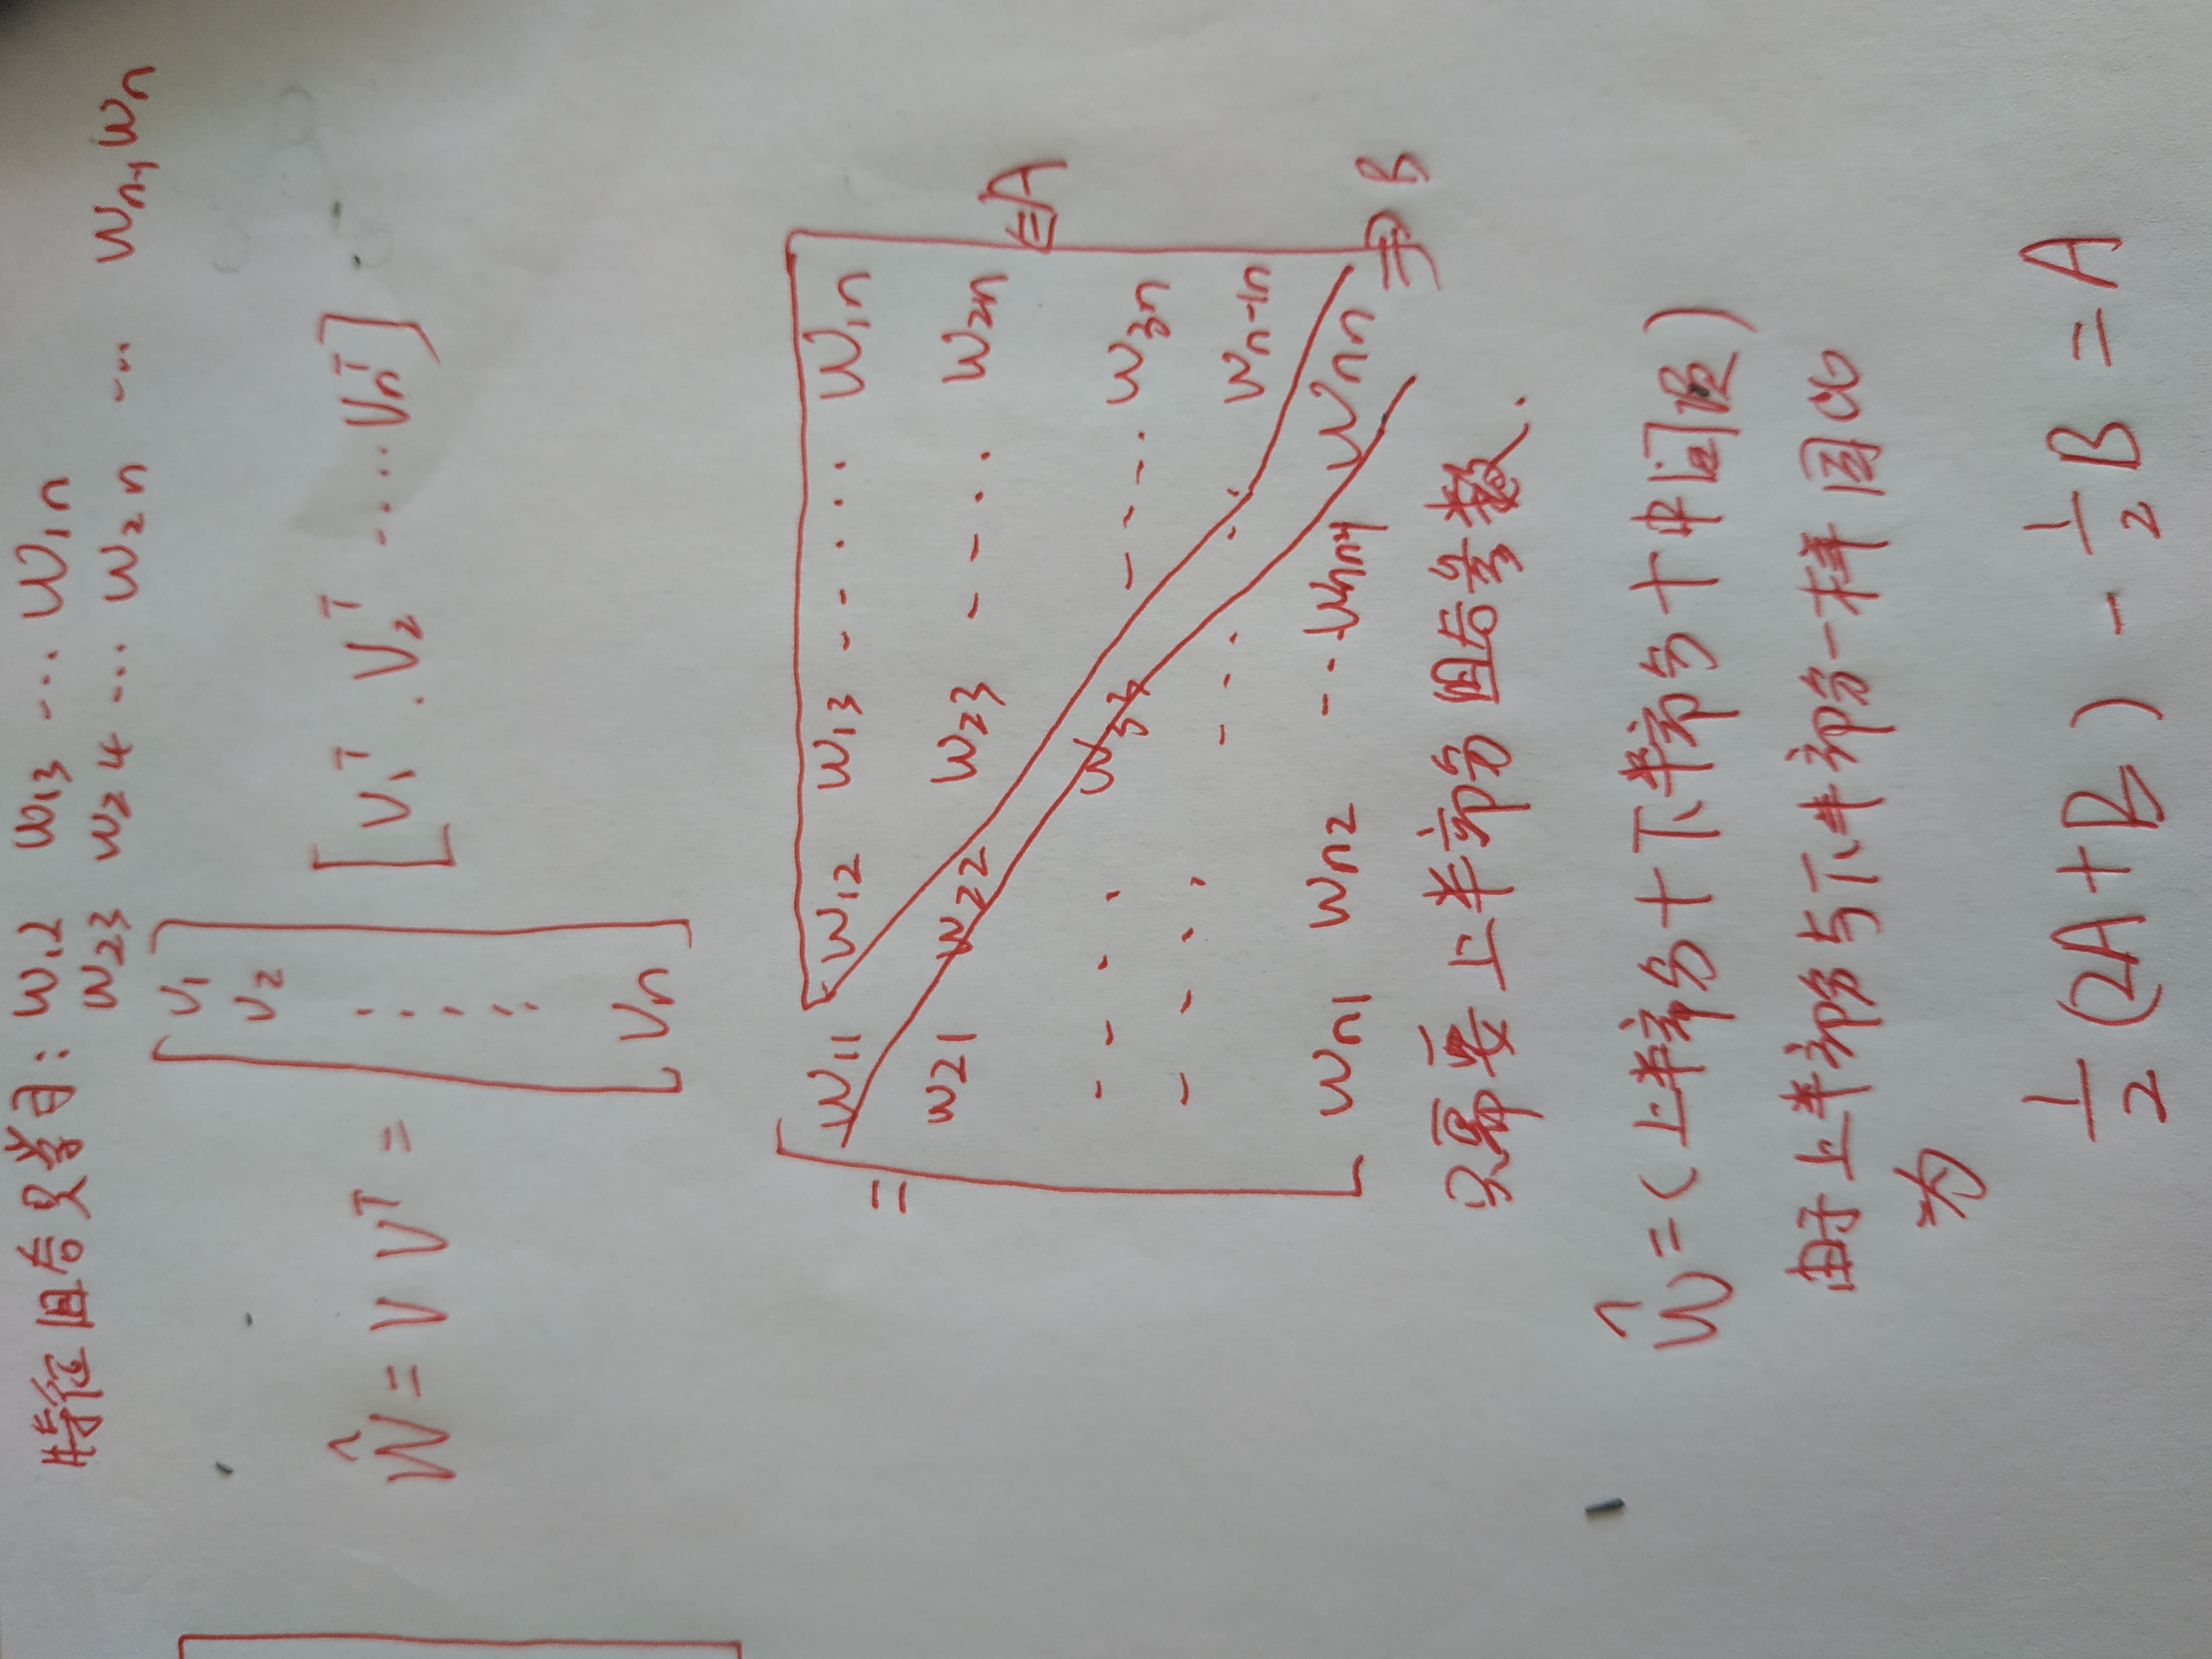 特征组合只学习: W12 W13 ... W1n
W23 W24 ... W2n ... Wn-1Wn
Ŵ = V V^T = [V1 V2 ⋮ Vn] [V1^T . V2^T .... Vn^T]
= [W11 W12 W13 ----... W1n
W21 W22 W23 ----.. W2n
---- W33 ----.. W3n
⇐A
---- ---- .. Wn-1n
Wn1 Wn2 --- Wnn-1 Wnn]
⇒ B
只需要上半部分组合参数.
Ŵ = (上半部分 + 下半部分 + 中间项)
由于上半部分与下半部分一样 因此
为
1/2 (2A+B) - 1/2 B = A